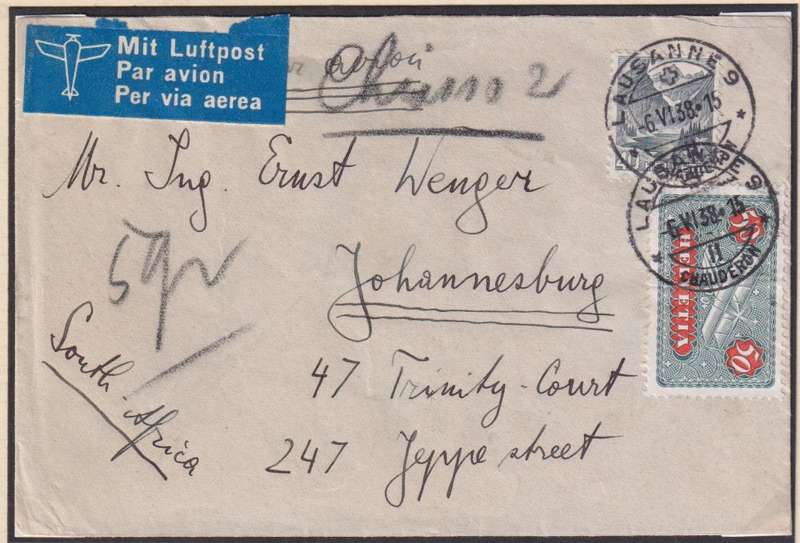 Mit Luftpost
Par avion
Per via aerea
avion
LAUSANNE 9
-6.VI.38-15
Mr. Ing. Ernst Wenger
LAUSANNE 9
-6.VI.38-15
11
CHAUDERON
5 gr
50
HELVETIA
50
Johannesburg
South-Africa
47 Trinity-Court
247 Jeppe street